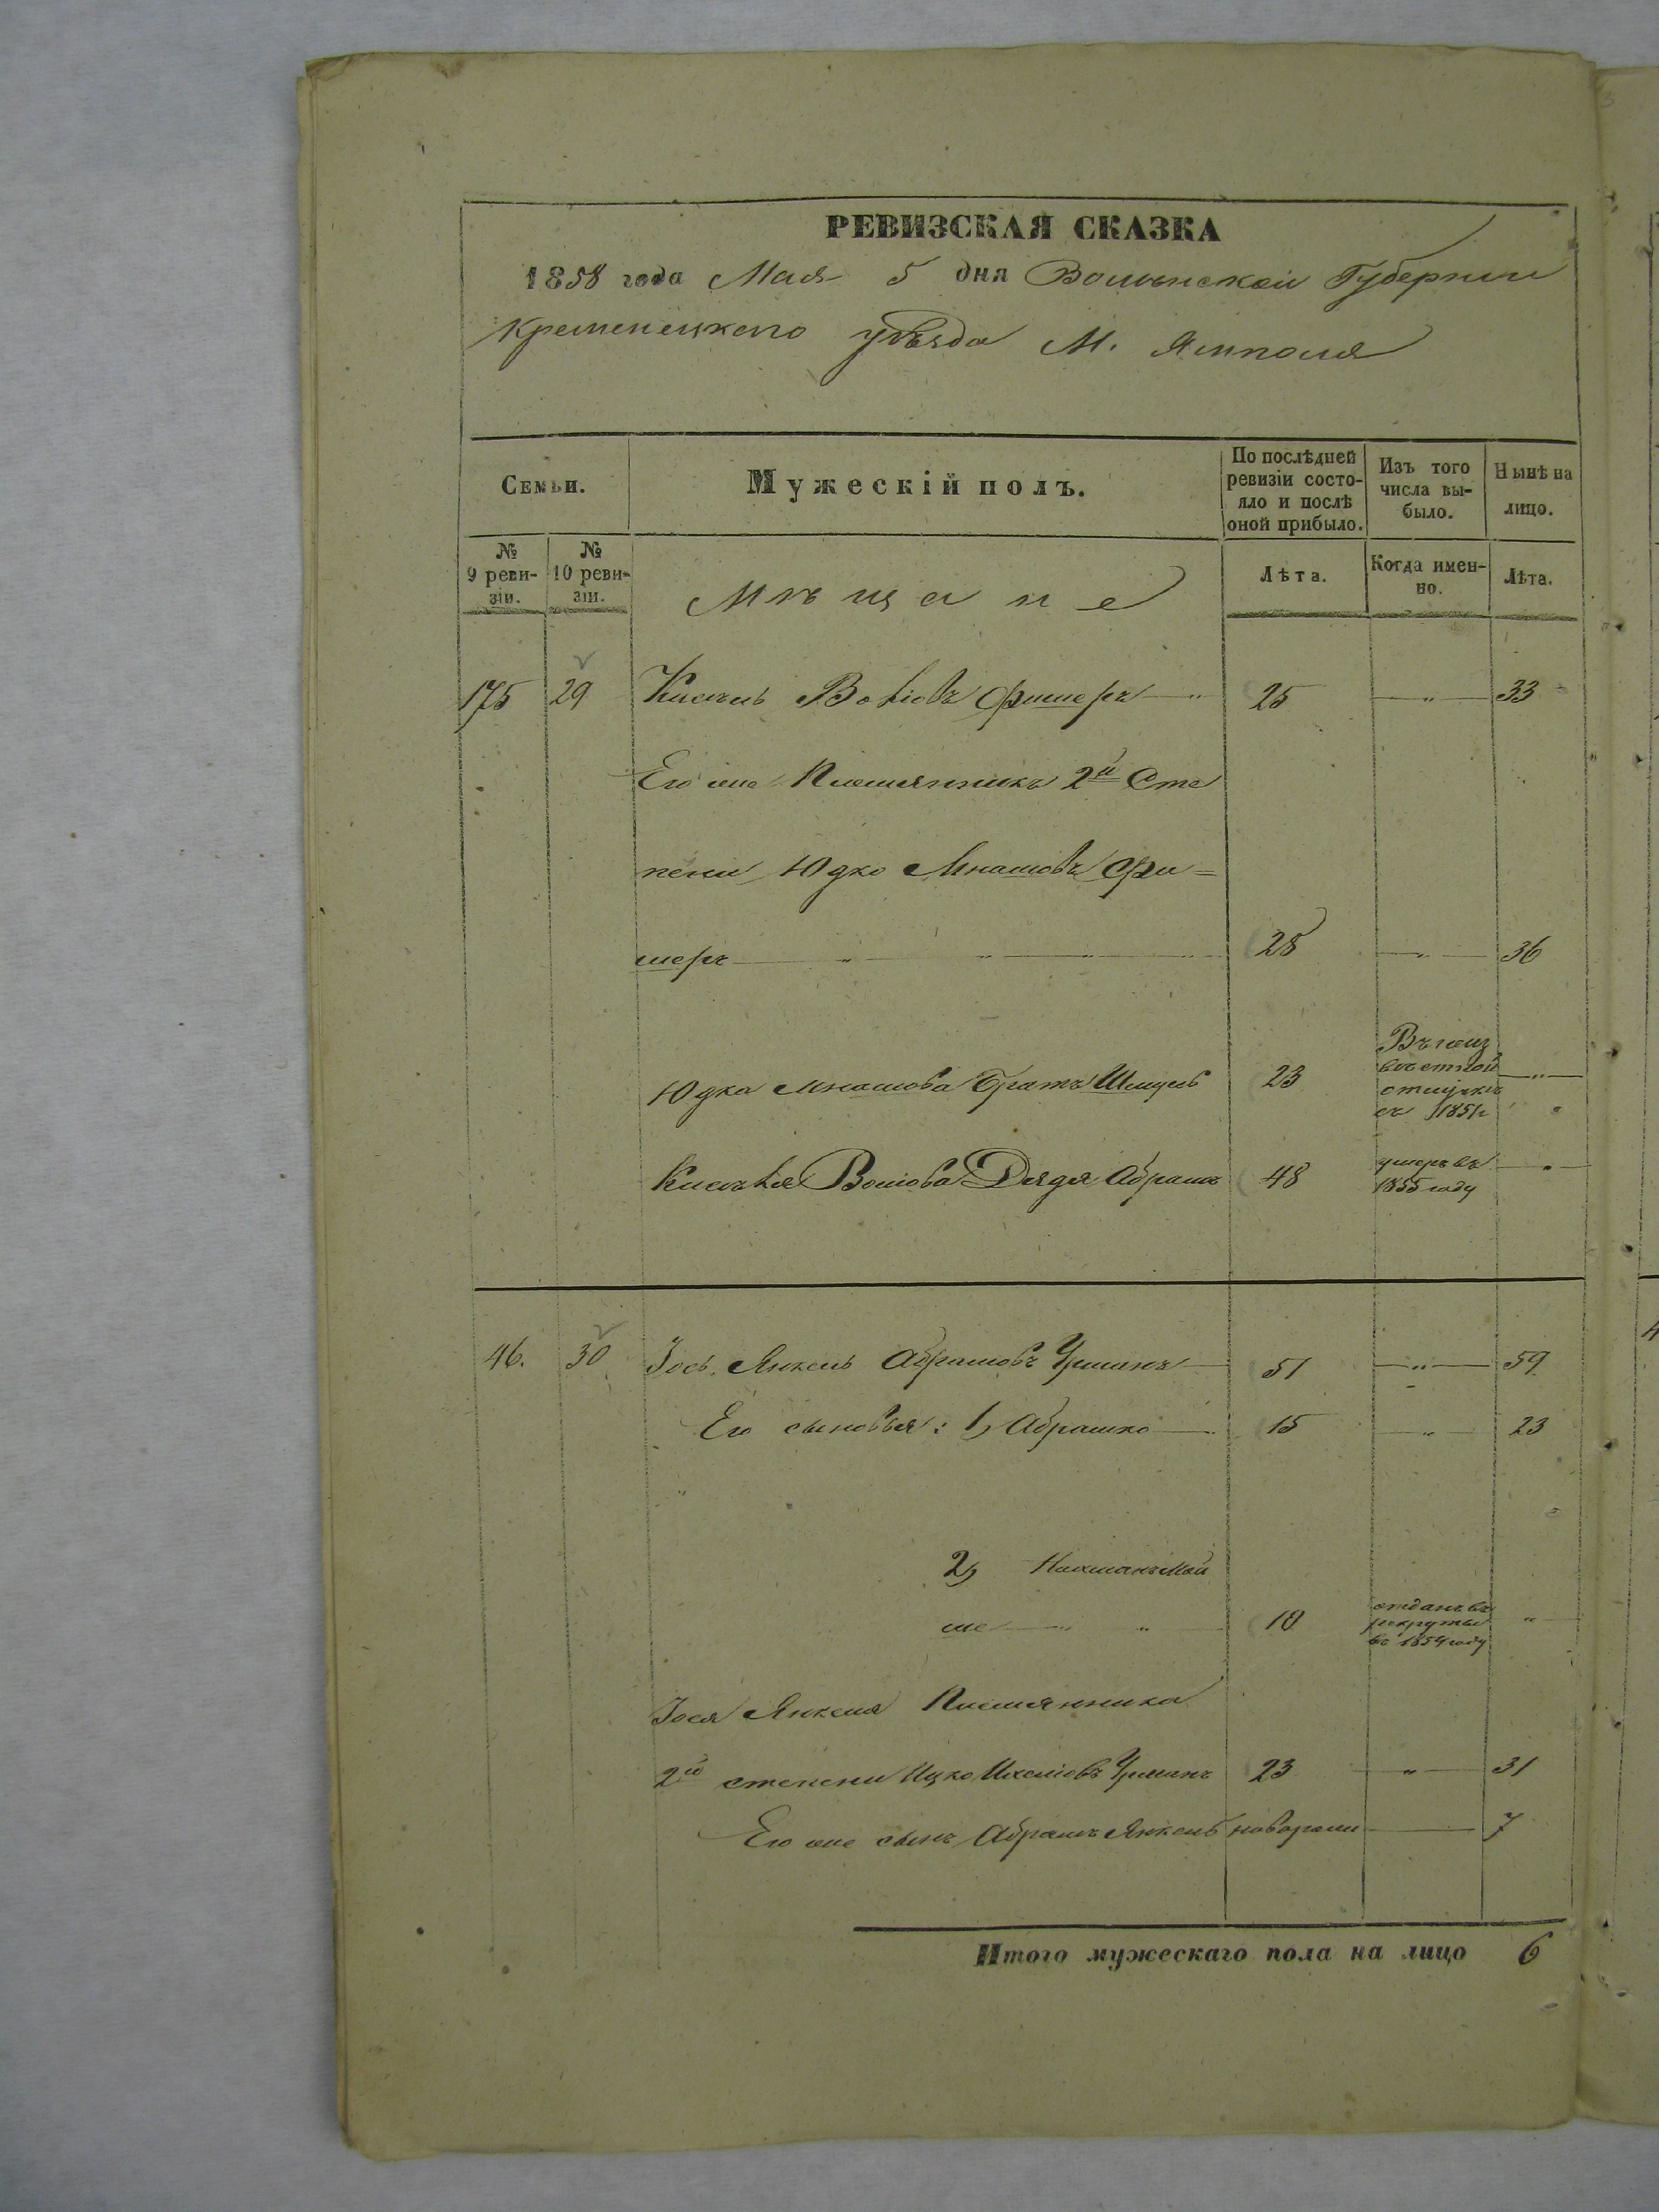 РЕВИЗСКАЯ СКАЗКА
1858 года Мая 5 дня Волынской Губернии
Кременецкого уѣзда М. Ямполя
Семьи.
Мужескій полъ.
По послѣдней ревизіи состояло и послѣ оной прибыло.
Изъ того числа выбыло.
Нынѣ на лицо.
№ 9 ревизіи.
№ 10 ревизіи.
Мѣщане
Лѣта.
Когда именно.
Лѣта.
175 29 Фишеръ 25 — " — 33
Его же Племянникъ 2й Сте
пени Юдко Мнашовъ Фи=
шеръ 28 — " — 36
Юдка Мнашова Братъ Шмуль 23
Въ неиз
вѣстной
отлучкѣ
съ 1851г
Дядя Абрамъ 48
умеръ въ
1855 году
46. 30 Іось Янкель Абрамовъ Урманъ 51 — " — 59
Его сыновья: 1, Абрашко 15 — " — 23
2, Нахманъ Мой
ше 10
отданъ въ
рекруты
въ 1854 году
Іося Янкеля Племянника
2й степени Ицко Урманъ 23 — " — 31
Его же сынъ Абрамъ Янкель новорож 7
Итого мужескаго пола на лицо 6